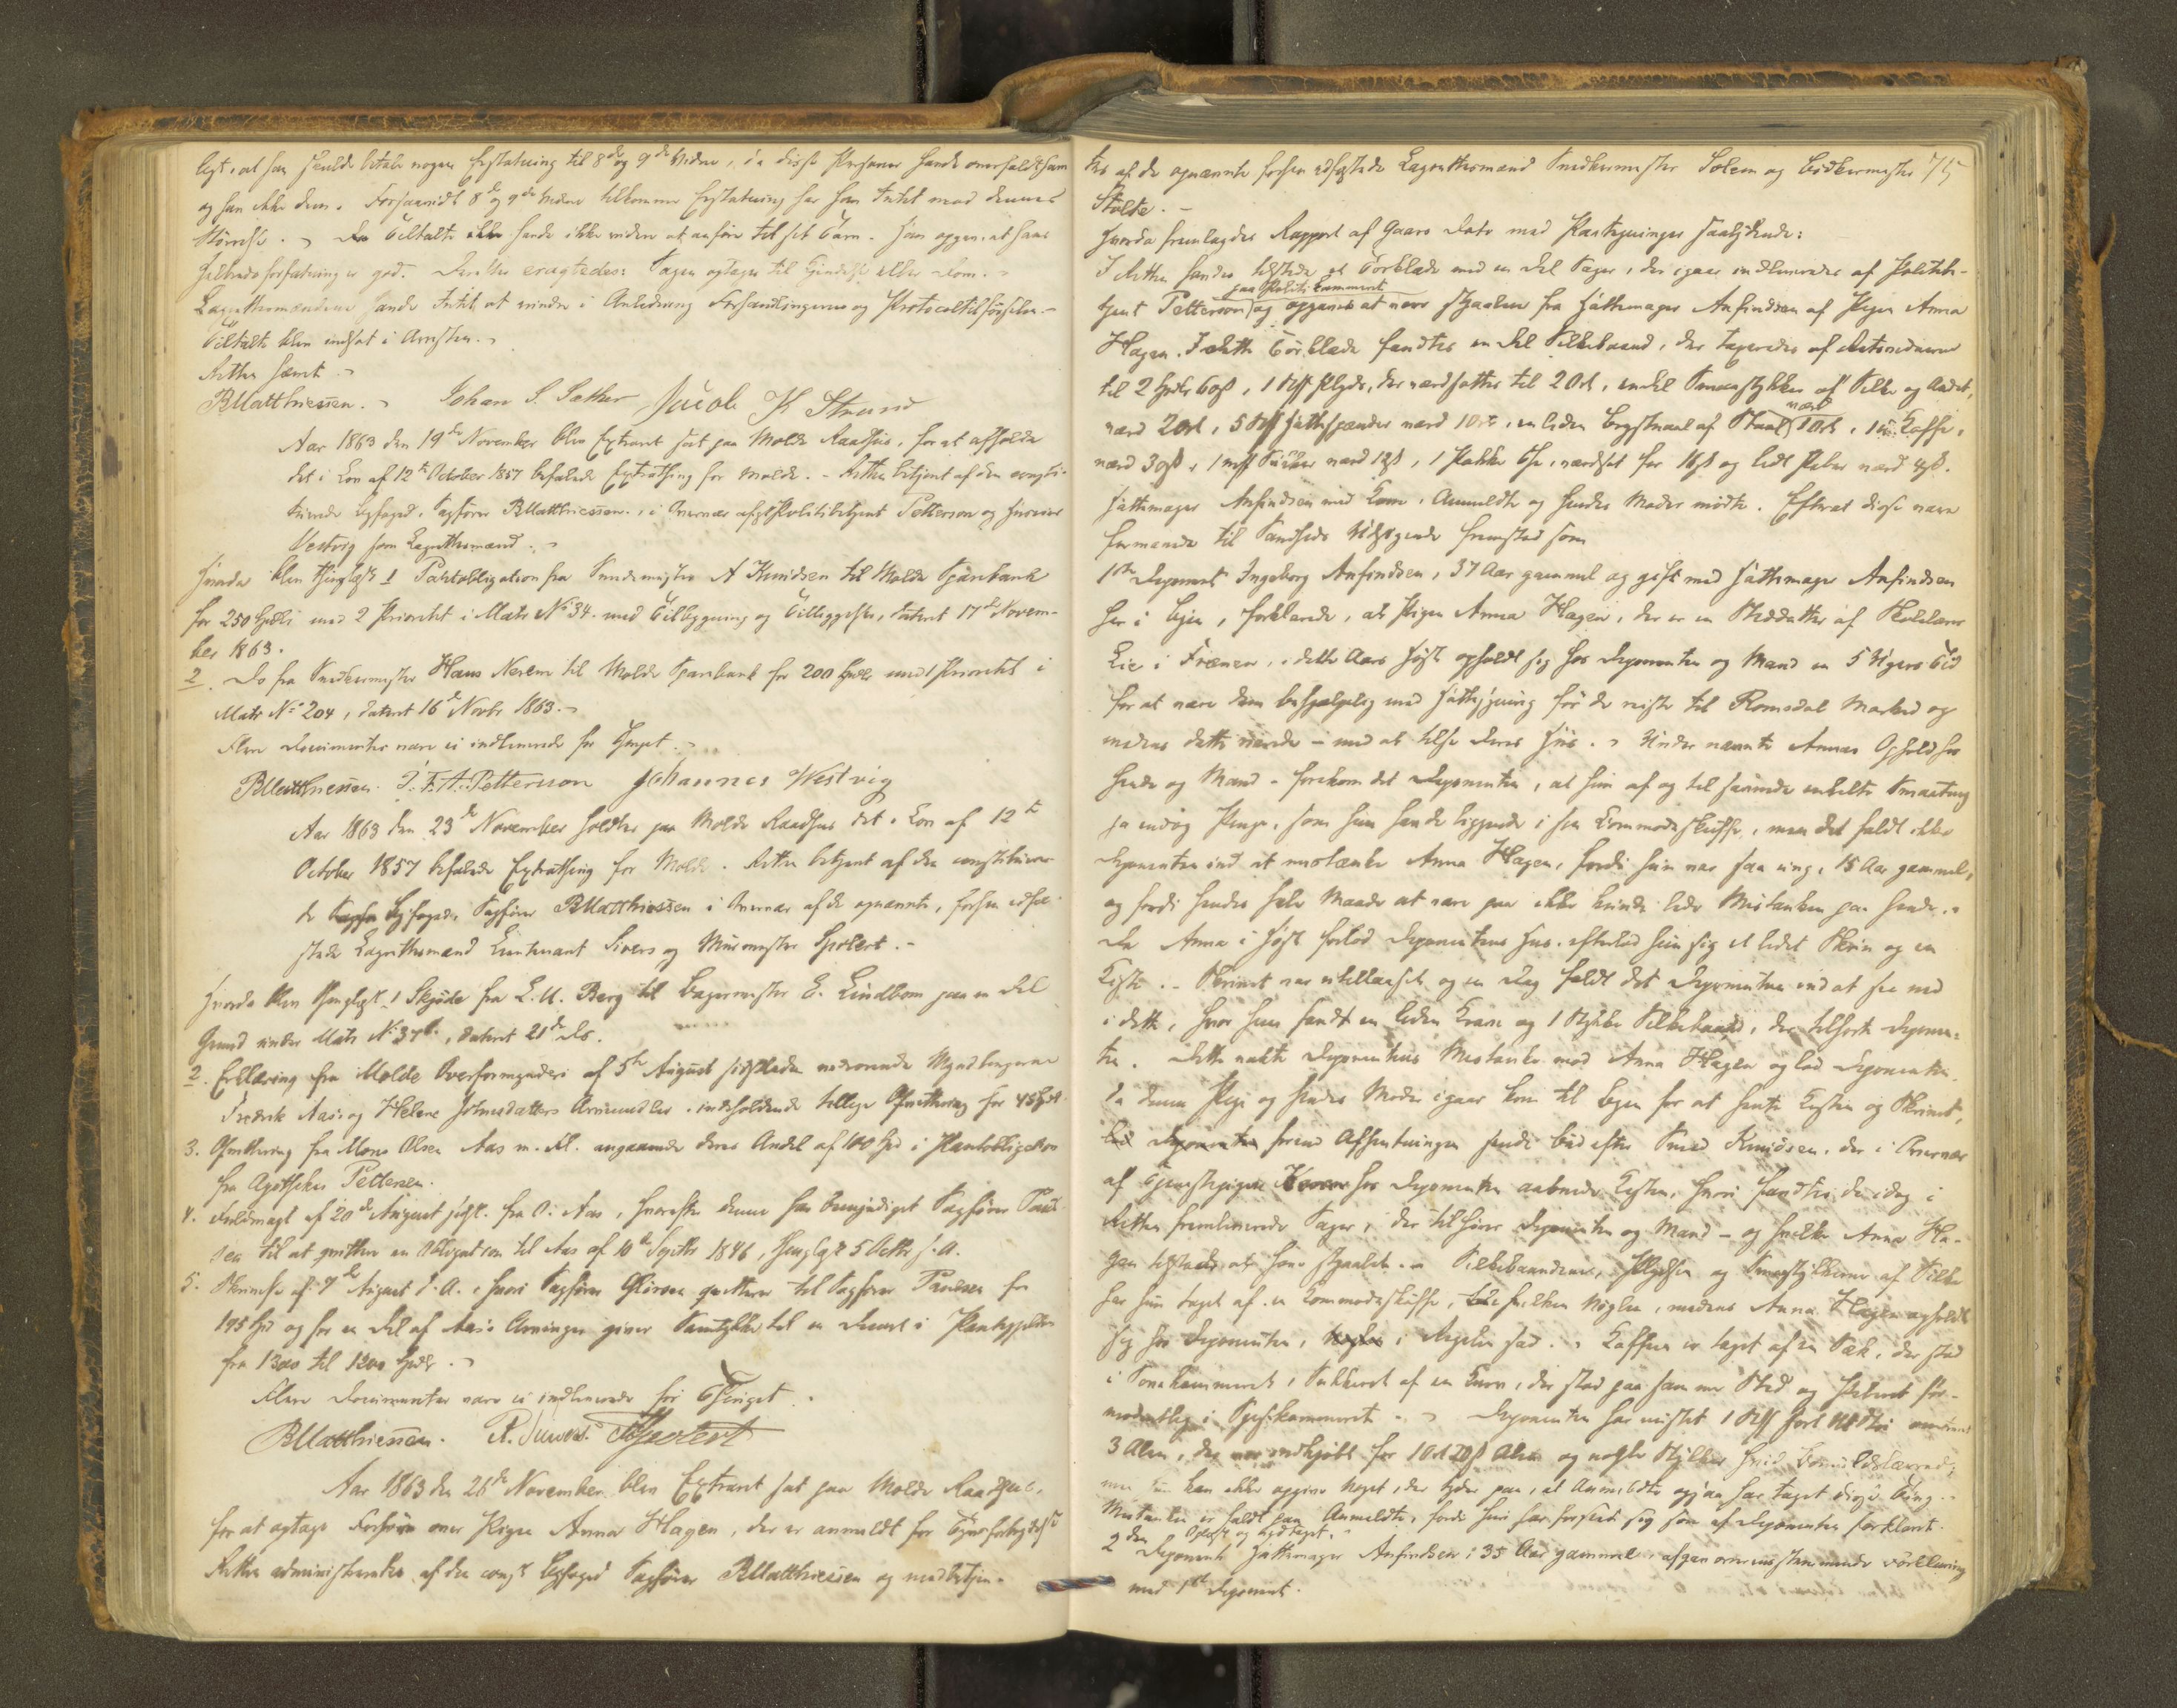 lagt, at han skulde betale nogen Erstatning til 8de og 9de Vidne, da disse Personer havde overfaldt ham
og han ikke dem. Forsaavidt 8de og 9de Vidne tilkommer Erstatning har han Intet mod dennes
Størrelse. Tiltalte havde ikke videre at anføre til sit Tarv. Han opgav, at hans
Helbredsforfatning er god. Derefter eragtedes: Sagen optages til Kjendelse eller Dom.
Lagrettesmændene havde Intet at erindre i Anledning Forhandlingerne og Protocoltilførselen.
Tiltalte blev indsat i Arresten.
Retten hævet.
BMatthiessen. Johan S. Sæther Jacob K Strand
Aar 1863 den 19de November blev Extraret sat paa Molde Raadhus, for at afholde
det i Lov af 12te October 1857 befalede Extrathing for Molde. Retten betjent af den consti-
tuerede Byfoged, Sagfører BMatthiessen, i Overvær af Politibetjent Petterson og
Vestvig som Lagrettesmænd.
Hvorda blev thinglæst 1 Pantobligation fra A Knudsen til Molde Sparebank
for 250 Spdlr med 2 Prioritet i Matr No 34 med Tilbygning og Tilliggelse, dateret 17de Novem-
ber 1863.
2. Do fra Snedkermester Hans Nerem til Molde Sparebank for 200 Spdlr med 1 Prioritet i
Matr No 204, dateret 16de Novbr 1863.
Flere Documenter vare ei indleverede for Thinget.
BMatthiessen. P. F. A. Petterson Johannes Westvig
Aar 1863 den 23de November holdtes paa Molde Raadhus det i Lov af 12te
October 1857 befalede Extrathing for Molde. Retten betjent af den constituere-
de Byfoged, Sagfører BMatthiessen i Overvær af de opnævnte, forhen edfæ-
stede Lagrettesmænd Lieutenant Sivers og Murmester
Hvorda blev thinglæst 1 Skjøde fra L. U. Berg til Bagermester E. Lindbom paa en Del
Grund under Matr No 37, dateret 21de ds.
2. Erklæring fra Molde Overformynderi af 5te August sidstleden vedrørende
Fredrik Aas og Helene Johnsdatters indeholdende tillige Qvittering for 45 Spd
3. Qvittering fra Mons Olsen Aas m. Fl. angaaende deres Andel af 100 Spd i Pantobligation
fra Apotheker Petterson.
4. Fuldmagt af 20de August sidstl. fra O. Aas, hvorefter denne har bemyndiget Sagfører Paul-
sen til at qvittere en Obligation til Aas af 10de Septbr 1846, thinglæst 5 Octbr s. A.
5. Skrivelse af 7de August d. A. hvori Sagfører qvitterer til Sagfører Paulsen for
195 Spd og for en Del af Aas's Arvinger giver Samtykke til en i Pantegjælden
fra 1300 til 1200 Spdlr.
Flere Documenter vare ei indleverede for Thinget.
BMatthiessen. R. Sivers.
Aar 1863 den 26de November blev Extraret sat paa Molde Raadhus,
for at optage Forhør over Pigen Anna Hagen, der er anmeldt for
Retten administreredes af den const. Byfoged Sagfører BMatthiessen og medbetjen-
75
tes af de opnævnte forhen edfæstede Lagrettesmænd Snedkermester Solem og Bødkermester
Stolte.
Hvorda fremlagdes Rapport af Gaars Dato med Paategninger saalydende:
I Retten havdes tilstede et Forklæde med en Del Sager, der igaar indleveredes af Politibe-
paa Politikammeret
tjent Petterson og opgaves at være stjaalne fra Hattemager Anfindsen af Pigen Anna
Hagen. I dette Forklæde fandtes en Del Silkebaand, der taxeredes af Retsvidnerne
til 2 Spdlr 60ß, 1 Stk Plyds, der værdsattes til 2 Ort, en Del Smaastykker af Silke og Andet,
værd 2 Ort, 5 Stk Hattespænder værd 10ß, en liden Brystnaal af Staal værd 1 Ort, Kaffe,
værd 30ß, Sukker værd 12ß, 1 Pakke The, værdsat for 16ß og lidt Peber værd 4ß.
Hattemager Anfindsen med Kone, Anmeldte og hendes Moder mødte. Efterat disse vare
formanede til Sandheds Udsigende fremstod som
1ste Deponent Ingeborg Anfindsen, 37 Aar gammel og gift med Hattemager Anfindsen
her i Byen, forklarede, at Pigen Anna Hagen, der er en Steddatter af Skolelærer
Lie i Frænen, i dette Aars Høst opholdt sig hos Deponenten og Mand en 5 Ugers Tid
for at være dem behjælpelig med Hattesyning før de reiste til Romsdals Marked og
medens dette varede – med at tilse deres Hus. Under nævnte Annas Ophold hos
hende og Mand – forekom det Deponenten, at hun af og til savnede enkelte Smaating
ja endog Penge, som hun havde liggende i sin Kommodeskuffe, men det faldt ikke
Deponenten ind at mistænke Anna Hagen, fordi hun var saa ung, 15 Aar gammel,
og fordi hendes hele Maade at være paa ikke kunde lede Mistanken paa hende.
Da Anna i Høst forlod Deponentens Hus, efterlod hun sig et lidet Skrin og en
Kiste. Skrinet var utillaaset og en Dag faldt det Deponenten ind at see ned
i dette, hvor hun fandt en liden Krave og 1 Stykke Silkebaand, der tilhørte Deponen-
ten. Dette vakte Deponentens Mistanke mod Anna Hagen og lod Deponenten,
da denne Pige og hendes Moder igaar kom til Byen for at hente Kisten og Skrinet,
forind Afhentningen sende Bud efter Smed Knudsen, der i Overvær
af Tjenestepigen hos Deponenten aabnede Kisten, hvori fandtes de idag i
Retten fremleverede Sager, der tilhører Deponenten og Mand – og hvilke Anna Ha-
gen tilstaar at have stjaalet. Silkebaandene, Plydsen og Smaastykkerne af Silke
har hun taget af en Kommodeskuffe, hvilken Nøglen, medens Anna Hagen opholdt
sig hos Deponenten, i Regelen sad. Kaffen er taget af en Sæk, der stod
i Sovekammeret, Sukkeret af en Kurv, der stod paa samme Sted og Peberet for-
modentlig i Spisekammeret. Deponenten har mistet 1 Stk sort omtrent
3 Alen, der var indkjøbt for 1 Ort 20ß Alen og nogle Stykker hvid Bomuldslærred,
men hun kan ikke opgive Noget, der tyder paa, at Anmeldte ogsaa har taget disse Ting.
Mistanken er faldt paa Anmeldte, fordi hun har forseet sig som af Deponenten forklaret.
Oplæst og vedtaget.
2den Deponent Hattemager Anfindsen, 35 Aar gammel, afgav overensstemmende Forklaring
med 1ste Deponent.